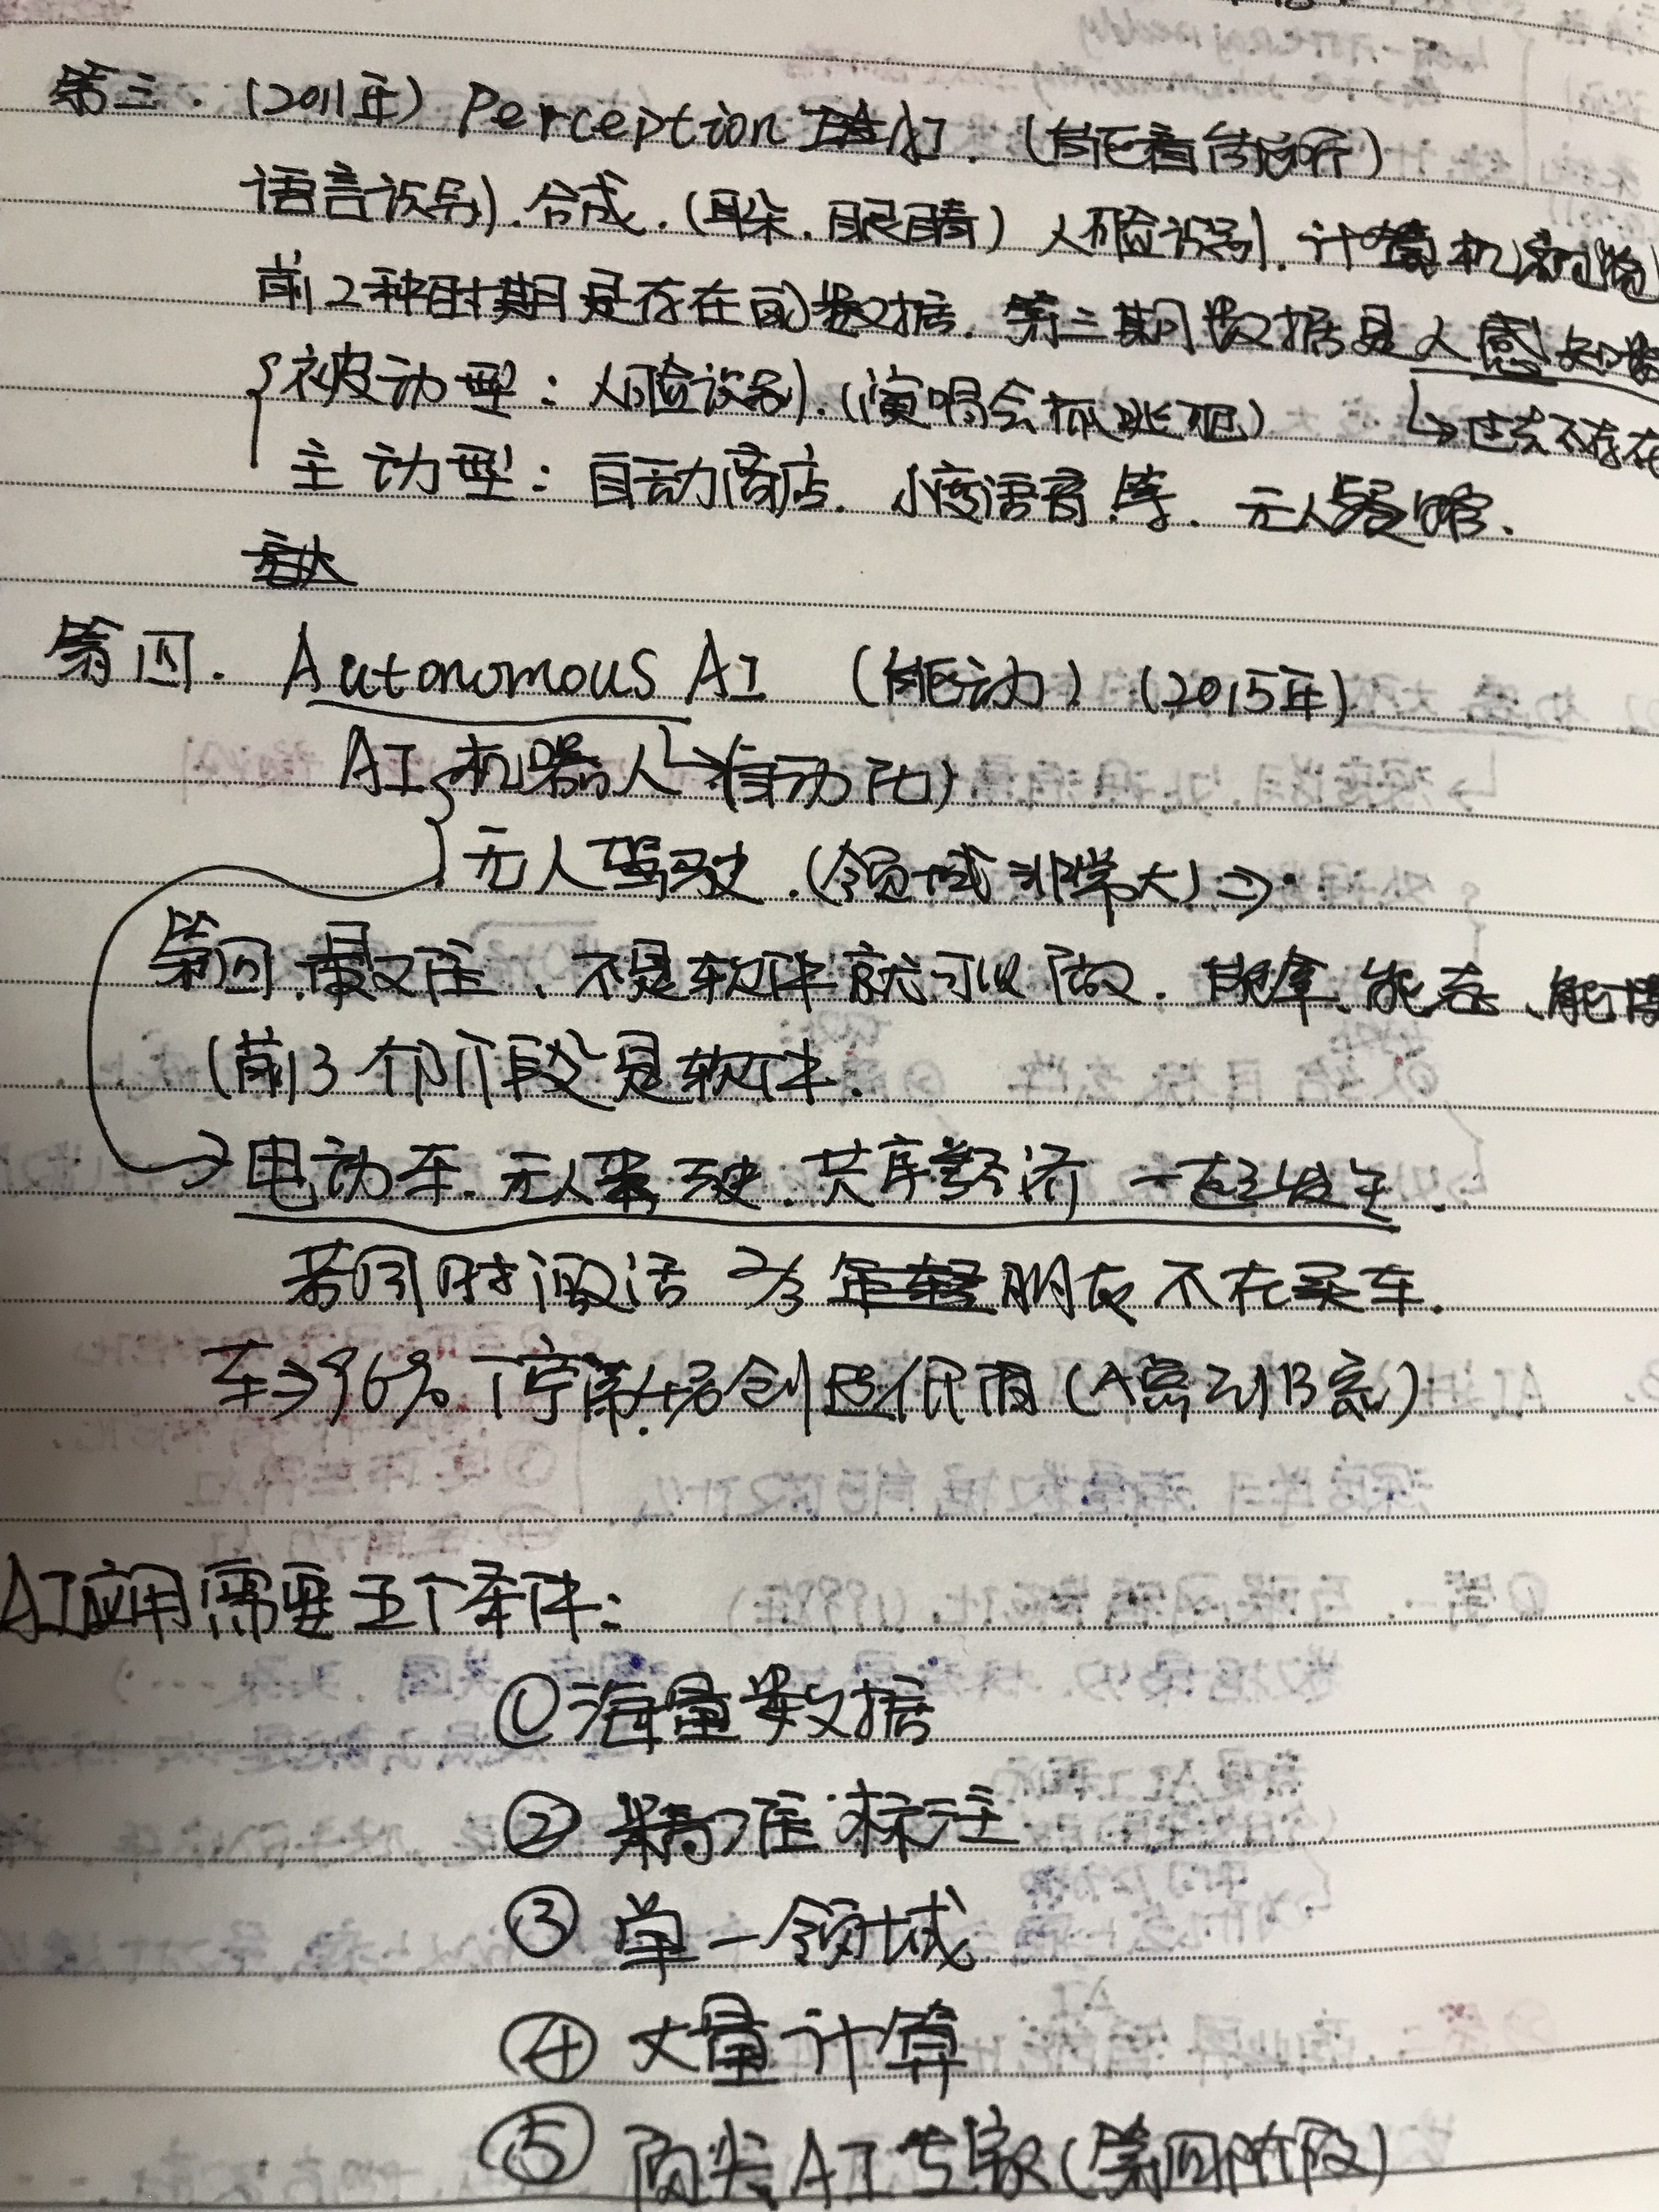 第三. (2011年) Perception AI. (能看能听)
语言识别.合成.(耳朵.眼睛) 人脸识别.计算机
前2种时期是存在的数据.第三期数据是人感知
被动型:人脸识别.(演唱会抓逃犯) → 过去不存在
主动型:自动商店.小度语音.库.无人
第四. Autonomous AI (能动) (2015年)
AI 机器人 → (自动化)
无人驾驶.(领域非常大) ⇒
第四.最难、不是软件就可以做. 能看、能
(前3个阶段是软件.
→ 电动车.无人驾驶.共享经济 一起发生.
若同时的话 2/3 朋友不在买车.
车⇒96% 停 (A点到B点)
AI应用需要五个条件:
① 海量数据
② 精准标注
③ 单一领域
④ 大量计算
⑤ 顶尖AI专家(第四阶段)